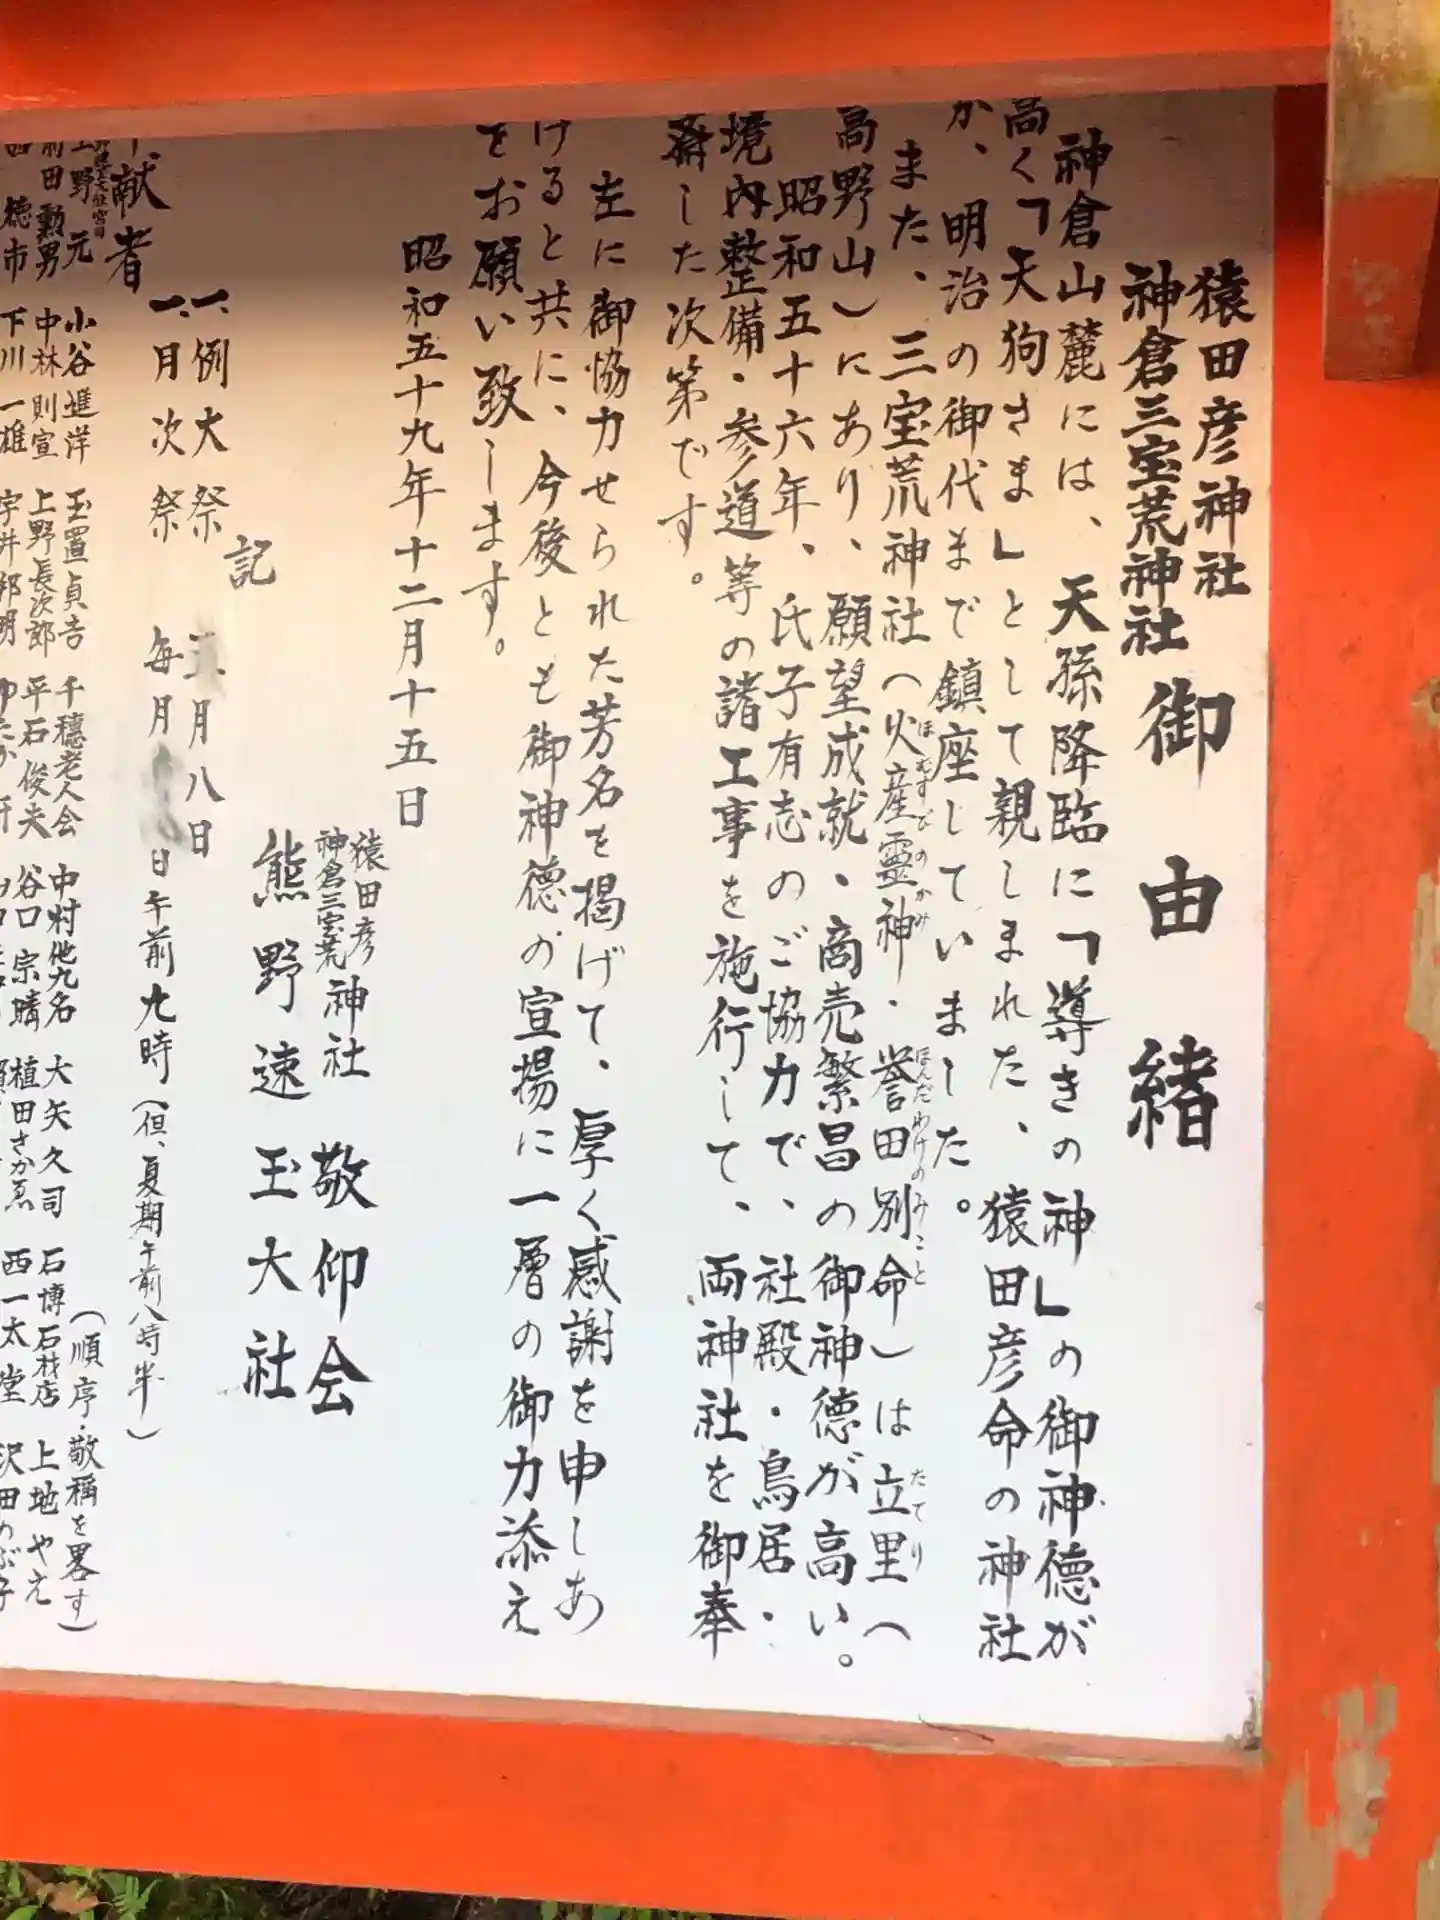 猿田彦神社
神倉三宝荒神社
御由緒
神倉山麓には、天孫降臨に「導きの神」の御神徳が
高く「天狗さま」として親しまれた、猿田彦命の神社
が、明治の御代まで鎮座していました。
また、三宝荒神社(火産霊神・誉田別命)は立里(
ほむすびのかみ
ほんだわけのみこと
たてり
高野山)にあり、願望成就・商売繁昌の御神徳が高い。
昭和五十六年、氏子有志のご協力で、社殿・鳥居・
境内整備・参道等の諸工事を施行して、両神社を御奉
斎した次第です。
左に御協力せられた芳名を掲げて、厚く感謝を申しあ
げると共に、今後とも御神徳の宣揚に一層の御力添え
をお願い致します。
昭和五十九年十二月十五日
猿田彦
神倉三宝荒
神社 敬仰会
熊野速玉大社
記
一、例大祭 月八日
一、月次祭 毎月 日午前九時(但、夏期午前八時半)
献者
(順序・敬称を畧す)
上野 元 小谷進洋 玉置貞吉 千穂老人会 中村他九名 大矢久司 石博石材店 上地やえ
前田勲男 中林則宣 上野長次郎 平石俊夫 谷口宗晴 植田さかゑ 西一太堂
西 徳市 下川一雄